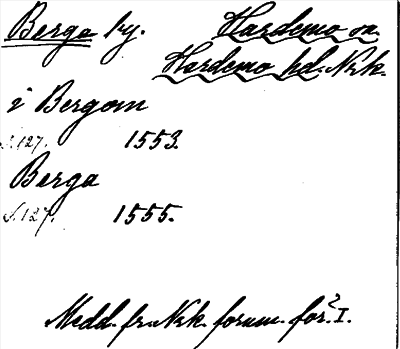 Berga by. Hardemo sn.
Hardemo hd. Nrk.
i Bergom
s. 127. 1553.
Berga
s. 127. 1555.
Medd. fr. Nrk. fornm. för. I.